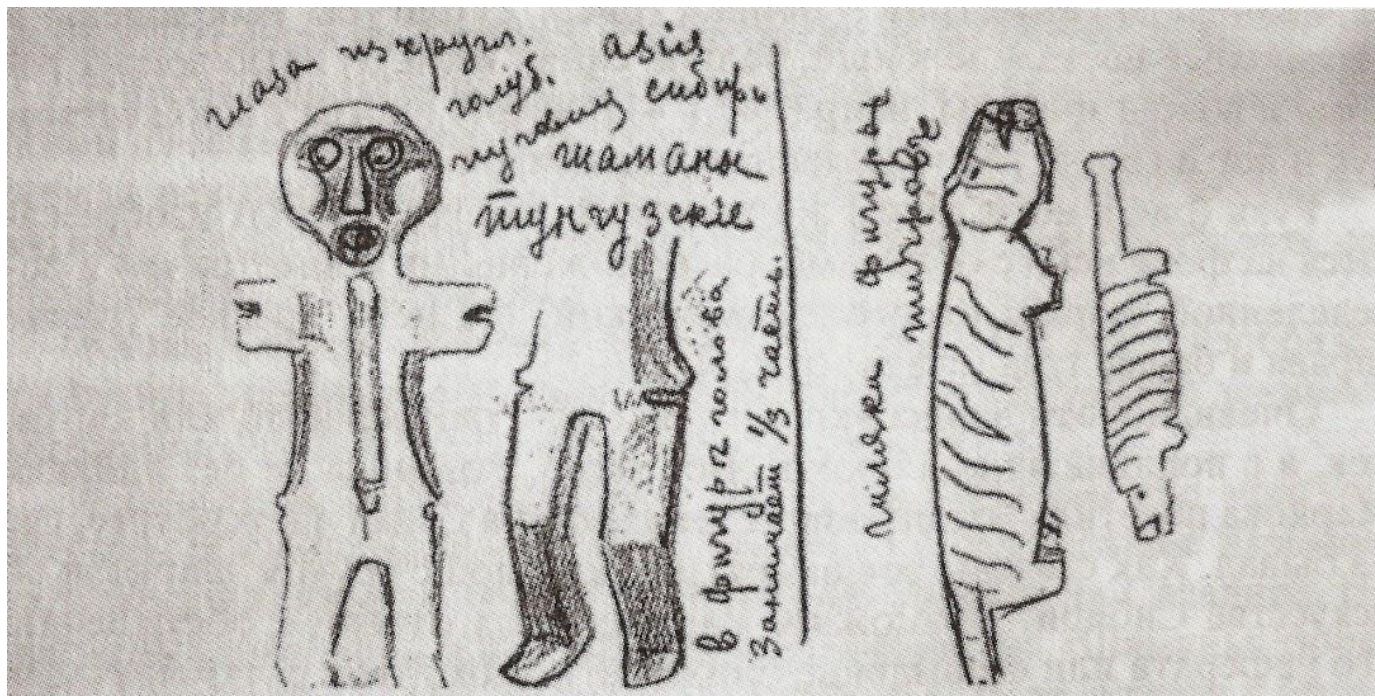 глаза из кругл.
голуб.
пуговиц
азія
сибирь
шаманы
тунгузскіе
в фигурѣ голова
занимаетъ 1/3 часть.
гиляки
фигуры
тигровъ